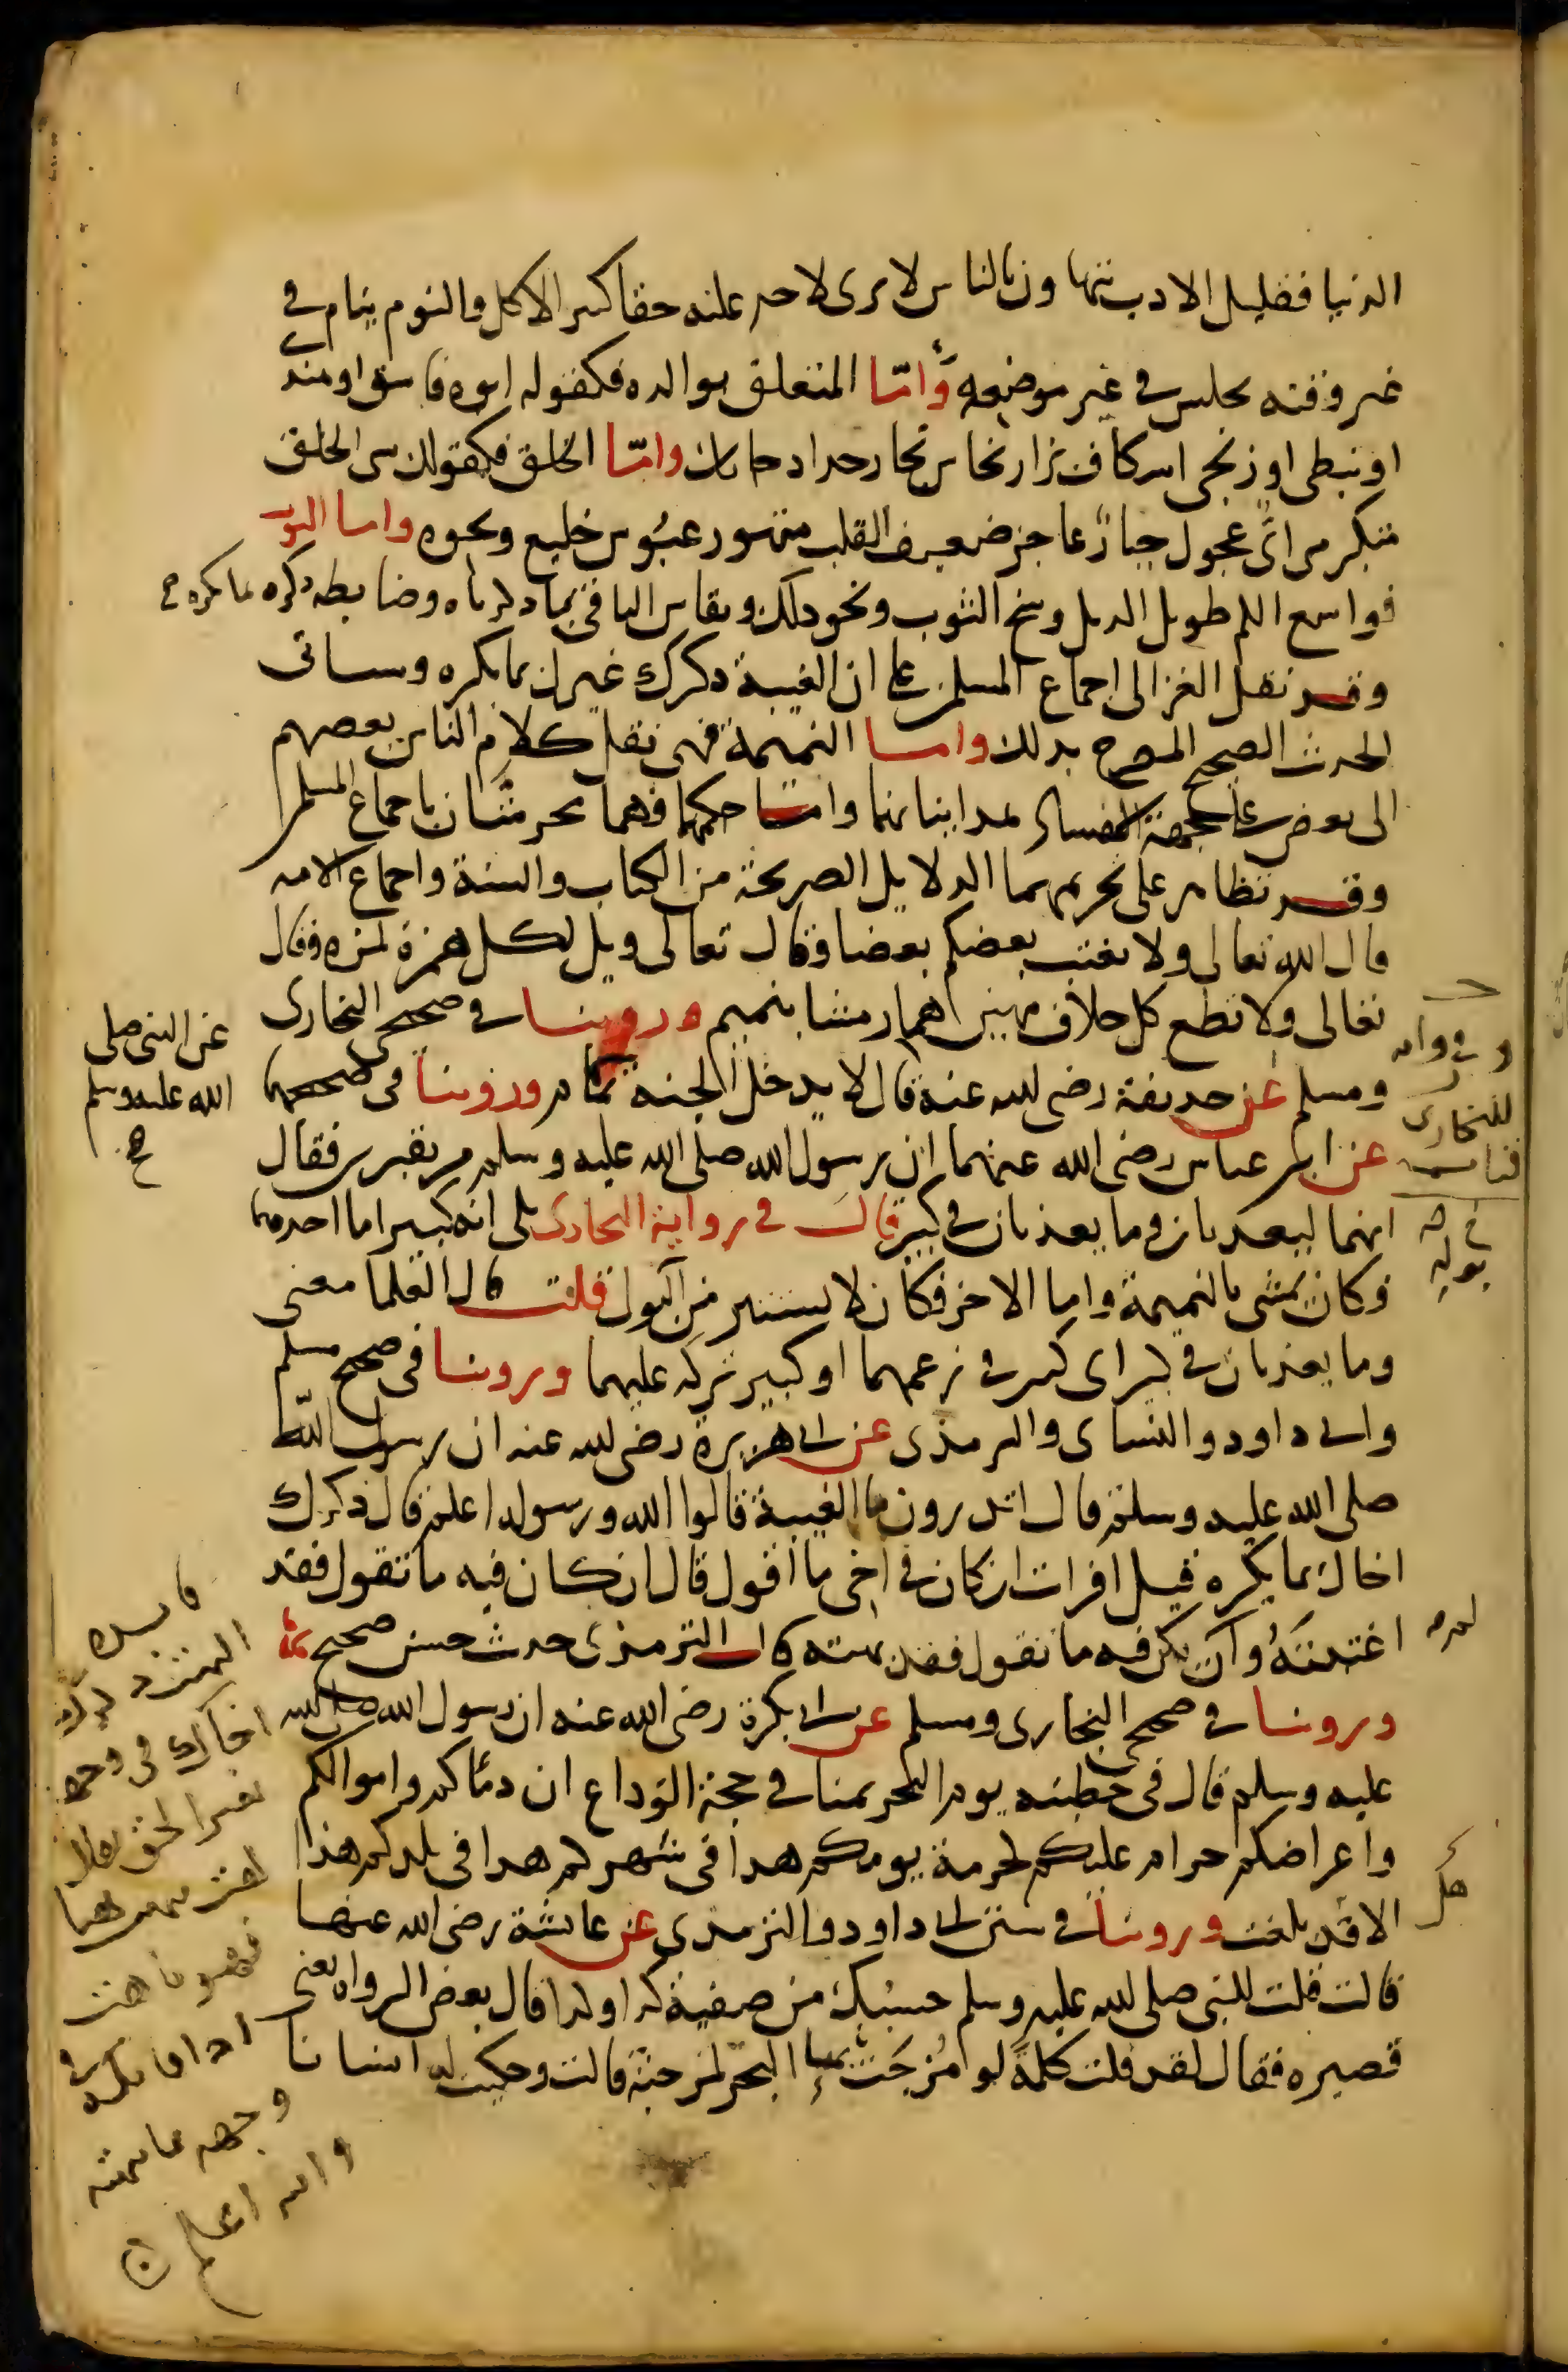 الدنيا فقليل الادب يتهاون بالناس لا يرى لاحد عليه حقا كثير الاكل والنوم ينام في
غير وقته يجلس في غير موضعه واما المتعلق بوالده فكقوله ابوه فاسق او هندي
او نبطي او زنجي اسكاف بزار نخاس نجار حداد حايك واما الخلق فكقولك سي الخلق
متكبر مراي عجول جبار عاجز ضعيف القلب متهور عبوس خليع ونحوه واما الثوب
فواسع الكم طويل الذيل وسخ الثوب ونحو ذلك ويقاس الباقي بما ذكرناه وضابطه ذكره بما يكره
وقد نقل الغزالي اجماع المسلمين على ان الغيبة ذكرك غيرك بما يكره وسياتي
الحديث الصحيح المصرح بذلك واما النميمة فهي نقل كلام الناس بعضهم
الى بعض على جهة الافساد هذا بيانهما واما حكمهما فهما محرمتان باجماع المسلمين
وقد تظاهر على تحريمهما الدلايل الصريحة من الكتاب والسنة واجماع الامه
قال الله تعالى ولا يغتب بعضكم بعضا وقال تعالى ويل لكل همزة لمزه وقال
تعالى ولا تطع كل حلاف مهين هماز مشا بنميم وروينا في صحيحي البخاري
ومسلم عن حذيفة رضي الله عنه قال لا يدخل الجنه نمام وروينا في صحيحيهما
عن النبي صلى
الله عليه وسلم
صح
عن ابن عباس رضي الله عنهما ان رسول الله صلى الله عليه وسلم مر بقبرين فقال
انهما ليعذبان وما يعذبان في كبير قال في رواية البخاري بلى انه كبير اما احدهما
فكان يمشي بالنميمة واما الاخر فكان لا يستتر من البول قلت قال العلما معنى
وما يعذبان في كبير اي كبير في زعمهما او كبير تركه عليهما وروينا في صحيح مسلم
وابي داود والنساي والترمذي عن ابي هريرة رضي الله عنه ان رسول الله
صلى الله عليه وسلم قال اتدرون ما الغيبة قالوا الله ورسوله اعلم قال ذكرك
اخاك بما يكره قيل افرايت ان كان في اخي ما اقول قال ان كان فيه ما تقول فقد
اغتبته وان يكن فيه ما تقول فقد بهته قال الترمذي حديث حسن صحيح
لم
وروينا في صحيحي البخاري ومسلم عن ابي بكرة رضي الله عنه ان رسول الله صلى الله
عليه وسلم قال في خطبته يوم النحر بمنا في حجة الوداع ان دماكم واموالكم
واعراضكم حرام عليكم لحرمة يومكم هذا في شهركم هذا في بلدكم هذا
الا قد بلغت وروينا في سنن ابي داود والترمذي عن عايشة رضي الله عنها
هل
قالت قلت للنبي صلى الله عليه وسلم حسبك من صفية كذا وكذا قال بعض الرواه يعني
قصيره فقال لقد قلت كلمة لو مزجت بها البحر لمزجته قالت وحكيت له انسانا
وفي رواية
للبخاري
والله اعلم